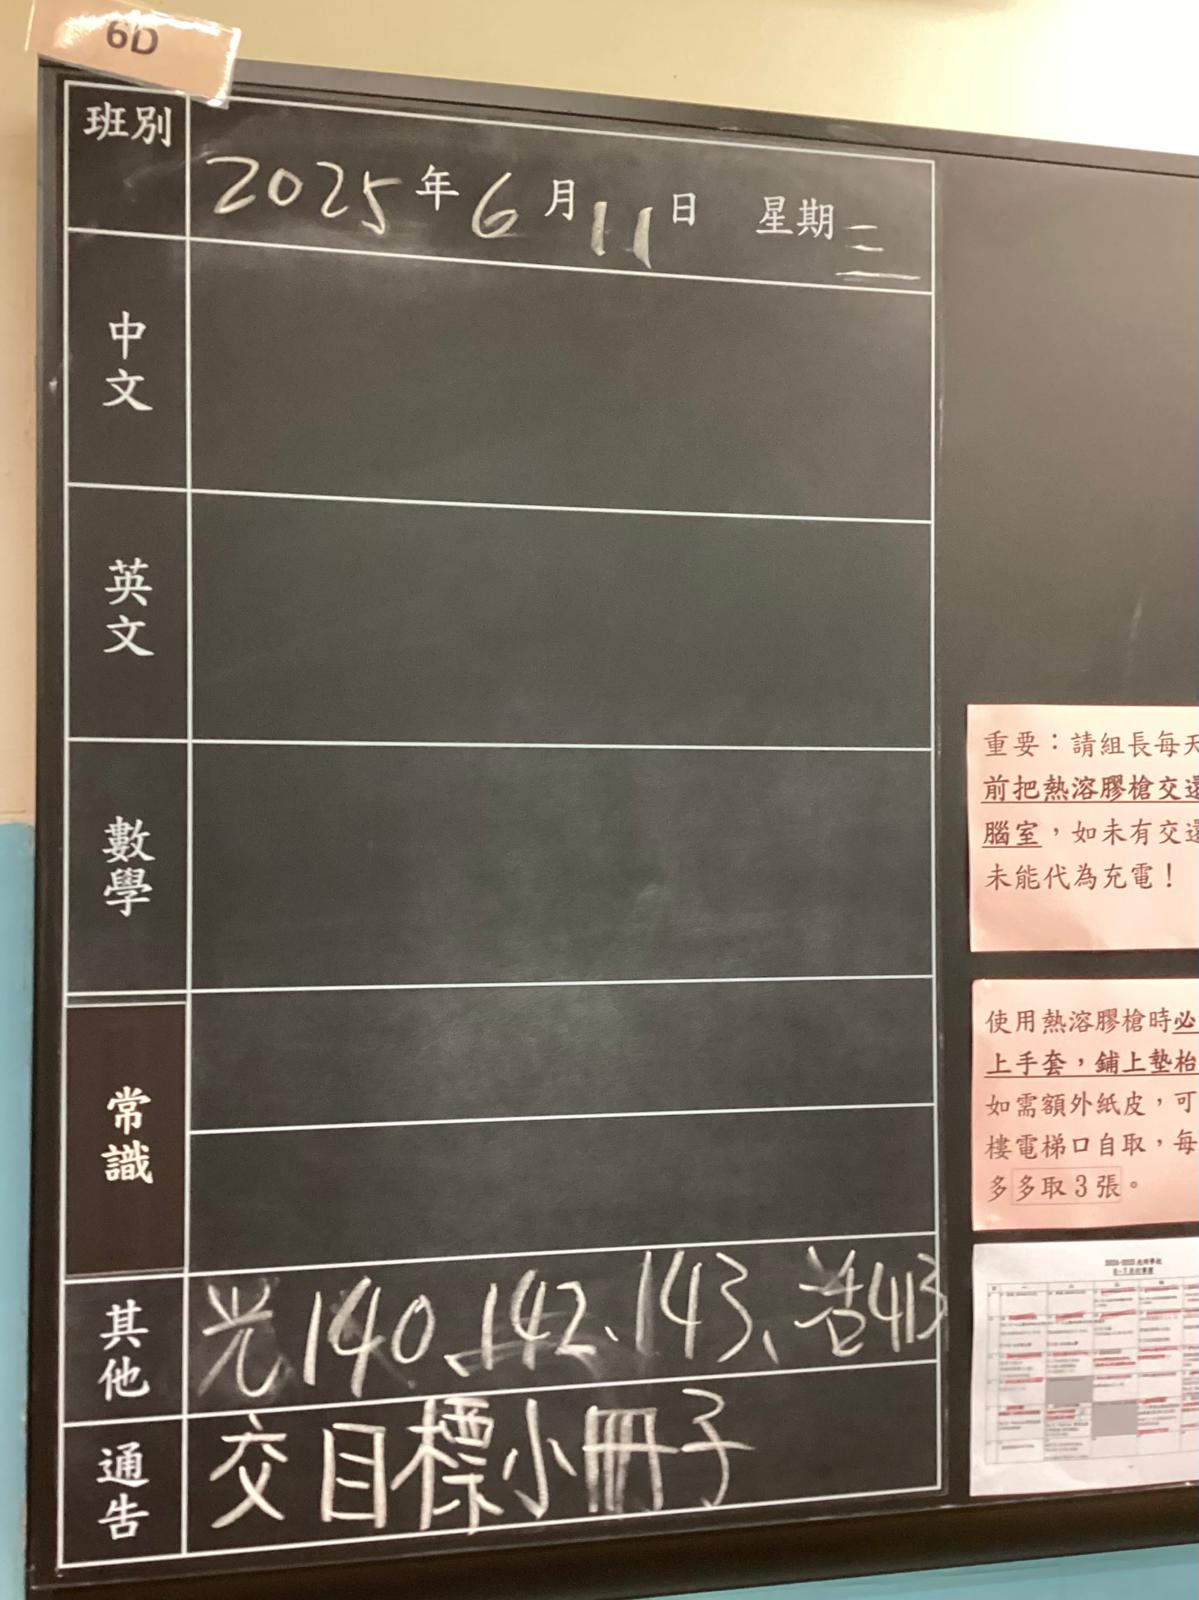 6D
班別
2025年6月11日 星期三
中文
英文
數學
常識
其他
光140、142、143、 413
通告
交目標小冊子
重要：請組長每天
前把熱溶膠槍交還
腦室，如未有交還
未能代為充電！
使用熱溶膠槍時必
上手套，鋪上墊枱
如需額外紙皮，可
樓電梯口自取，每
多多取3張。